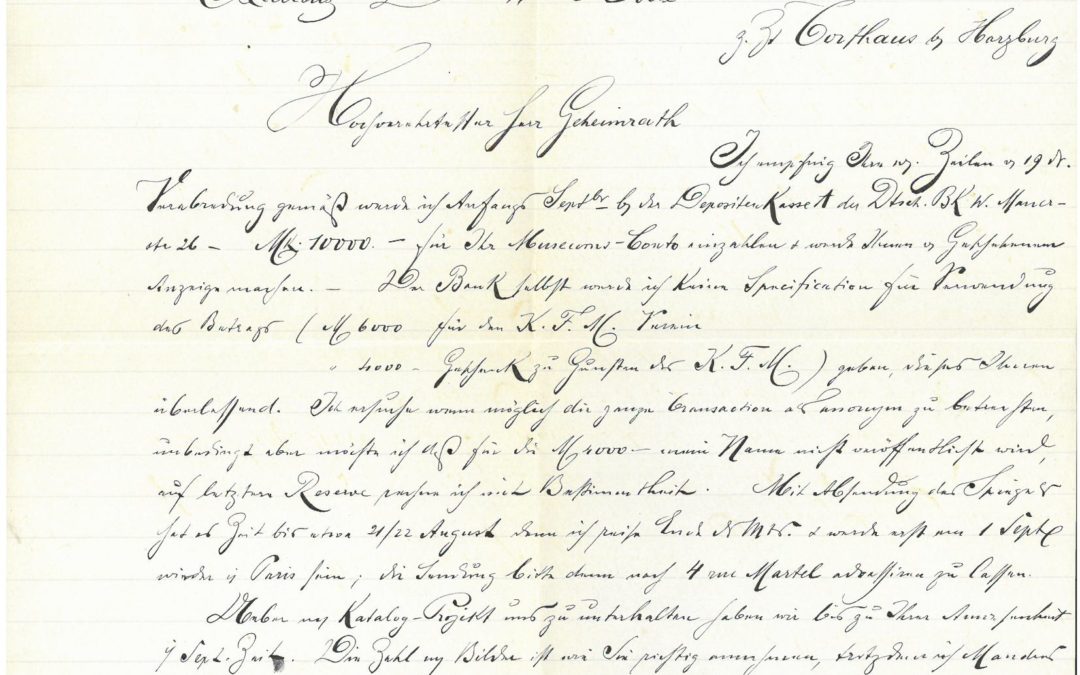 z. Zt Torfhaus b/ Harzburg
Hochverehrtester Herr Geheimrath
Ich empfing Ihre w. Zeilen v 19 ds.
Verabredung gemäß werde ich Anfangs Septbr b/ der Depositen Kasse A der Dtsch. BK W. Mauer-
str 26 – Mk. 10000. – für Ihr Museums-Conto einzahlen & werde Ihnen v Geschehenem
Anzeige machen. – Der Bank selbst werde ich keine Specification für Verwendung
des Betrags ( M 6000 für den K. F. M. Verein
" 4000 – Geschenk zu Gunsten des K. F. M. ) geben, dieses Ihnen
überlassend. Ich ersuche wenn möglich die ganze Transaction als anonym zu betrachten,
unbedingt aber möchte ich daß für die M 4000 – mein Name nicht veröffentlicht wird,
auf letztere Reserve rechne ich mit Bestimmtheit. Mit Absendung des Spiegels
hat es Zeit bis etwa 21/22 August denn ich reise Ende ds Mts. & werde erst am 1 Sept
wieder i/ Paris sein; die Sendung bitte dann nach 4 rue Martel adressiren zu lassen.
Ueber m/ Katalog-Projekt uns zu unterhalten haben wir bis zu Ihrer Anwesenheit
i/ Sept. Zeit. Die Zahl m/ Bilder ist wie Sie richtig annehmen, trotzdem ich Manches